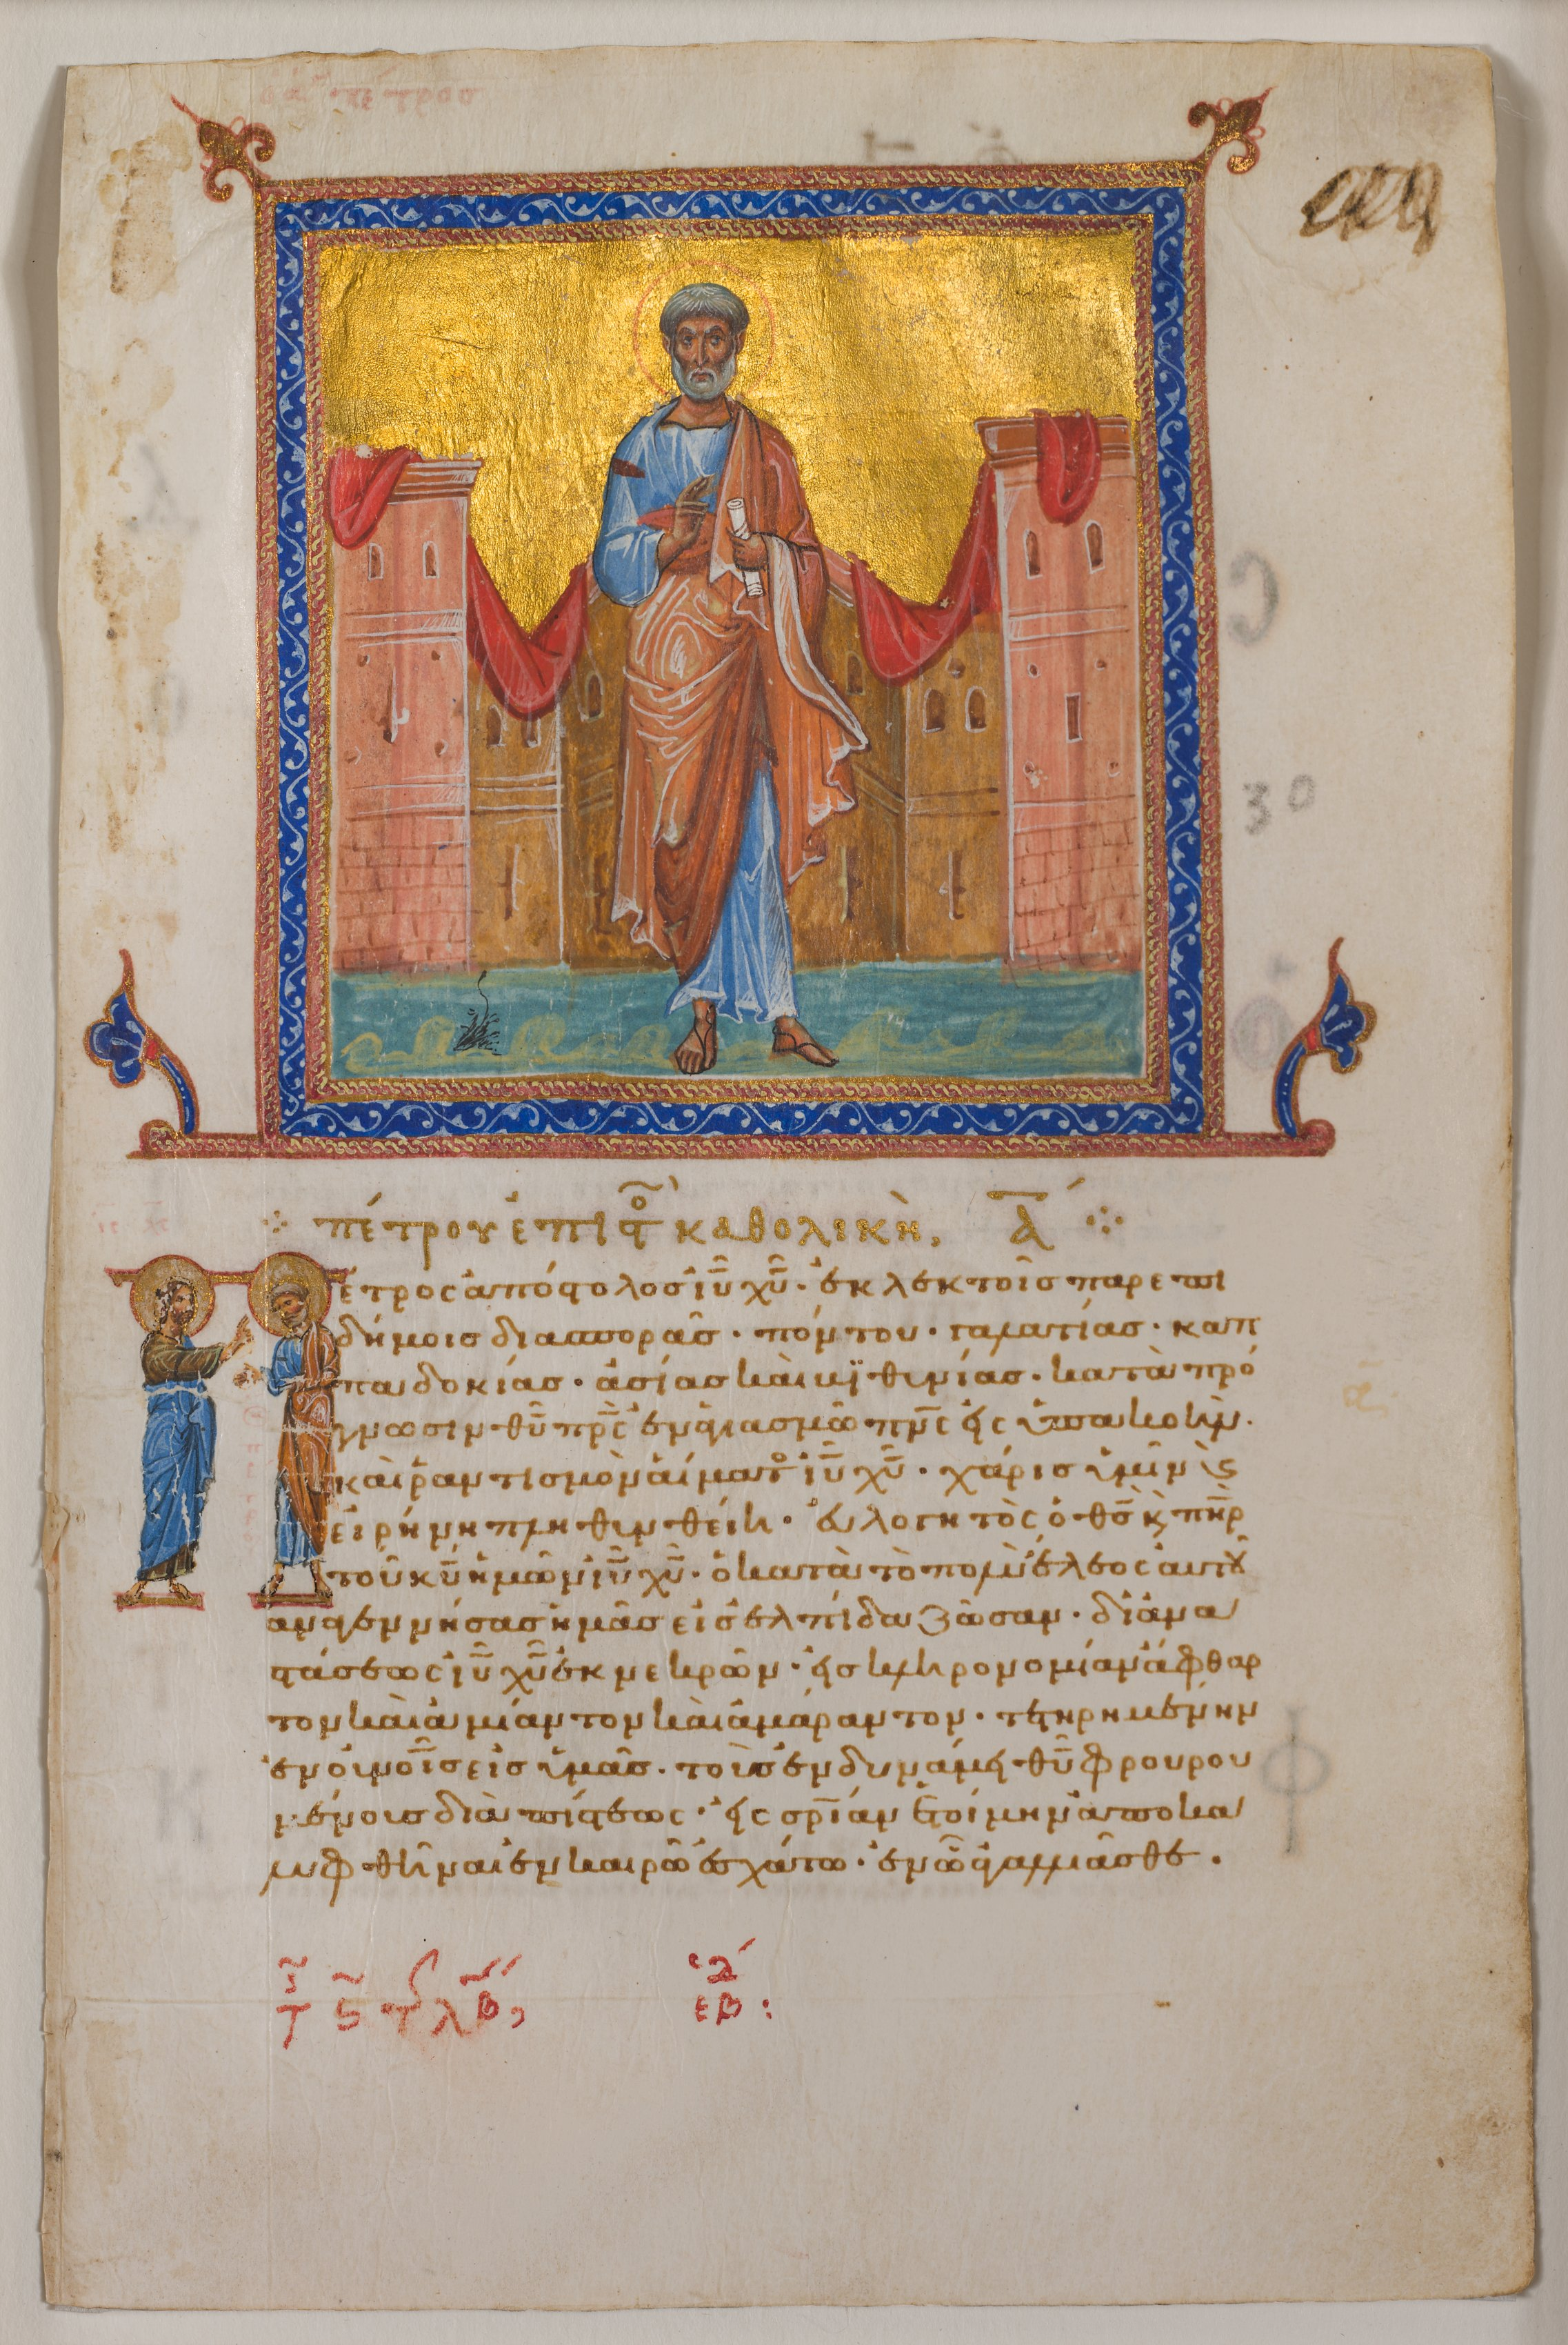 πέτρου ἐπιϛο̑ καθολικὴ, Α̅
ἐτρος ἀπόϛολος ἰῦ χῦ· ἐκλεκτοῖς παρεπι
δήμοις διασπορᾶς· πόντου· γαλατίας· καπ
παδοκίας· ἀσίας καὶ βϊθυνίας· κατὰ πρό
γνωσιν θῦ πρ̅ς ἐν ἁγιασμῶ πν̅ς εἰς ὑπακοὴν·
καὶ ῥαντισμὸν αἵματο ἰῦ χῦ· χάρις ὑμῖν κ̀
εἰρήνη πληθυνθείη· εὐλογητὸς ὁ θς̅ κ̀ πη̅ρ
τοῦ κῦ ἡμῶν ἰῦ χῦ· ὁ κατὰ τὸ πολὺ ἔλεος αὐτοῦ
αναγεννήσας ἡμᾶς εἰς ἐλπίδα ζῶσαν· δι᾽ ἀνα
ϛάσεως ἰῦ χῦ ἐκ νεκρῶν· εἰς κληρονομίαν ἄφθαρ
τον καὶ ἀμίαντον καὶ ἀμάραντον· τετηρημένην
ἐν οὐνοῖς εἰς ὑμᾶς· τοὺς ἐν δυνάμει θῦ φρουρου
μένους διὰ πίϛεως· εἰς σρ̅ίαν ἑτοίμην ἀποκα
λυφθῆναι ἐν καιρῶ ἐσχάτω· ἐν ὧ ἀγαλλιᾶσθε.
30
Φ